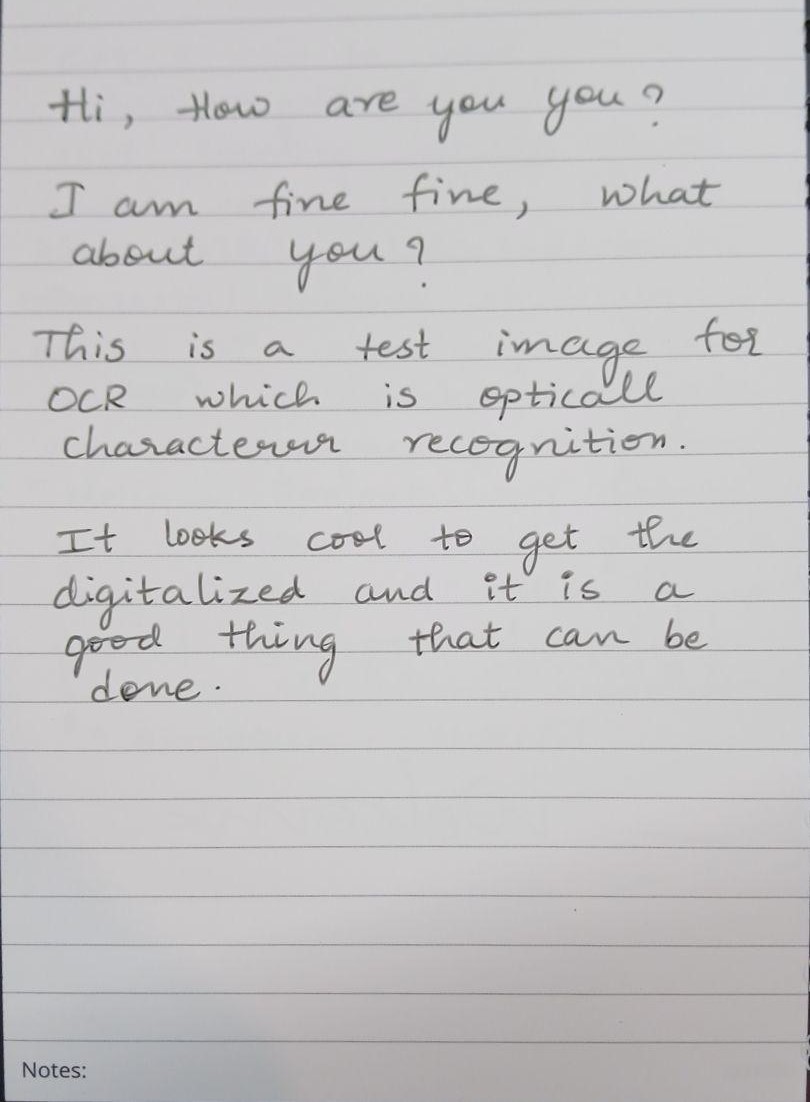 Hi, How are you you?
I am fine fine, what
about you?
This is a test image for
OCR which is opticall
characterer recognition.
It looks cool to get the
digitalized and it is a
good thing that can be
done.
Notes: